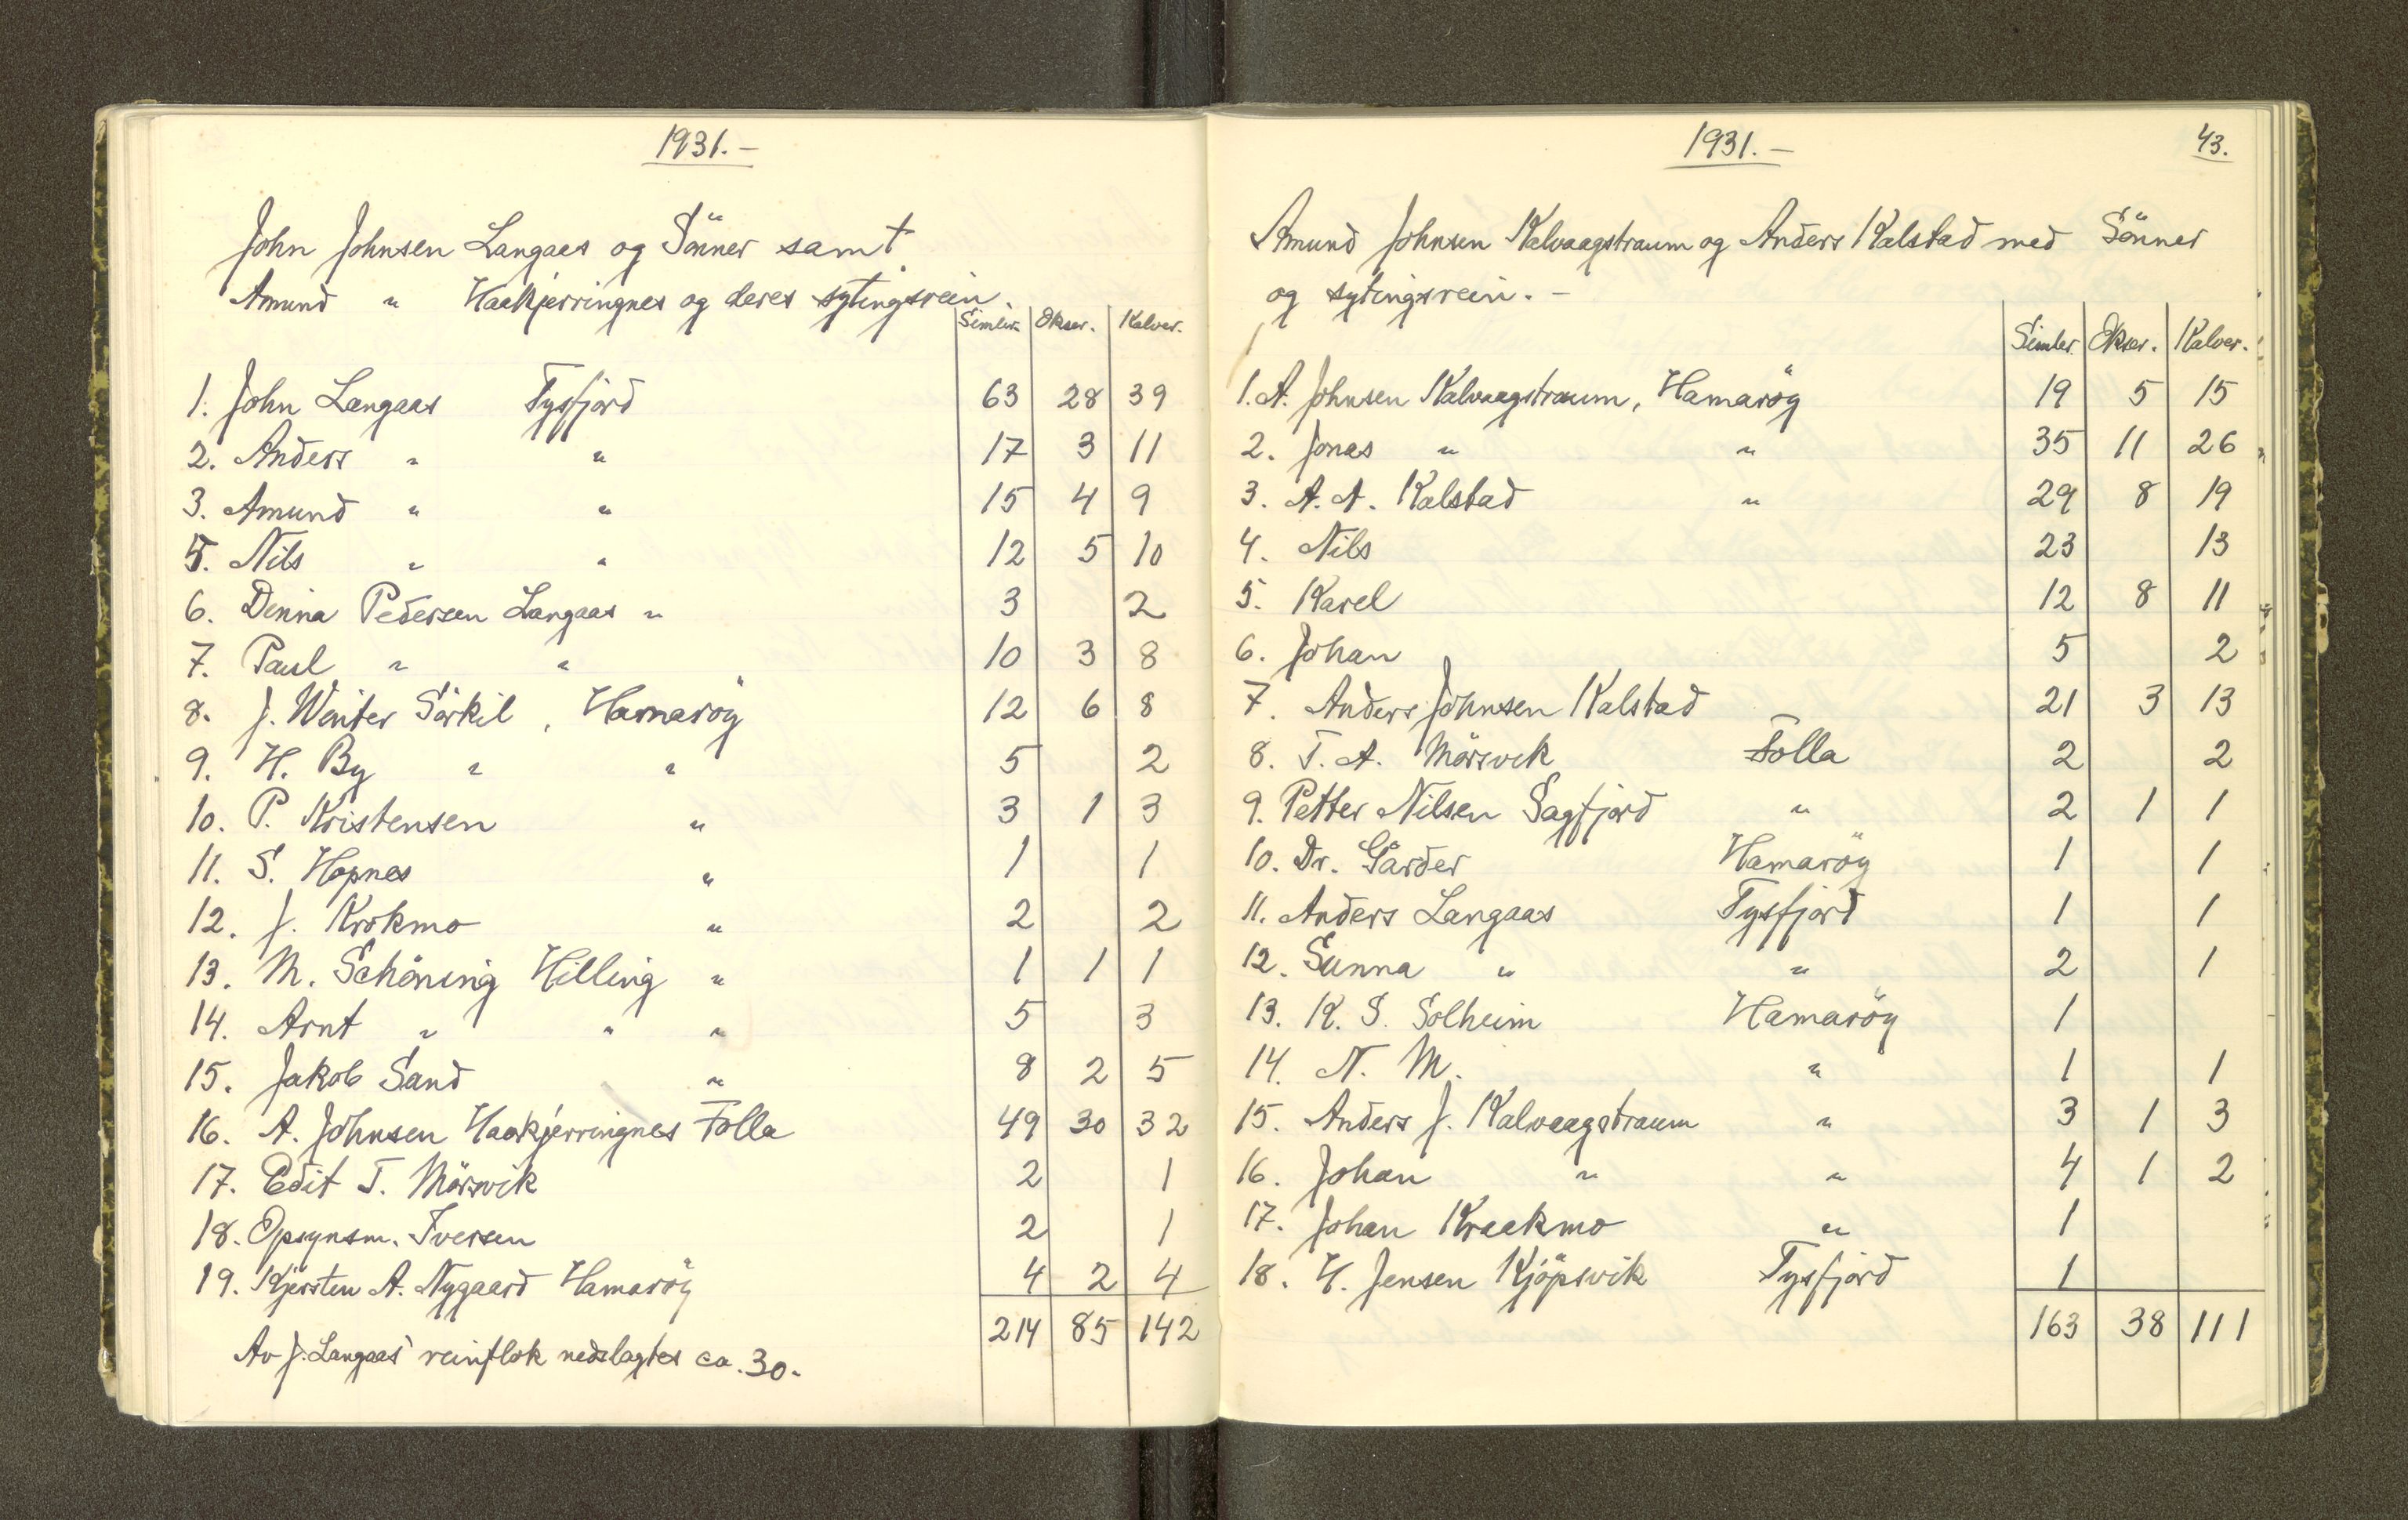 1931.-
John Johnsen Langaas og Sönner samt
Amund " Haakjerringnes og deres sytingsrein.
Simler. Okser. Kalver.
1. John Langaas Tysfjord 63 28 39
2. Anders " " 17 3 11
3. Amund " " 15 4 9
5. Nils " " 12 5 10
6. Denna Pedersen Langaas " 3 2
7. Paul " " 10 3 8
8. J. Winter Särkil, Hamaröy 12 6 8
9. H. By " " 5 2
10. P. Kristensen " 3 1 3
11. S. Hopnes " 1 1
12. J. Krokmo " 2 2
13. M. Schöning Hilling " 1 1 1
14. Arnt " " " 5 3
15. Jakob Sand " 8 2 5
16. A. Johnsen Haakjerringnes Folla 49 30 32
17. Edit T. Mörsvik 2 1
18. Opsynsm. Iversen 2 1
19. Kjersten A. Nygaard Hamaröy 4 2 4
214 85 142
Av J. Langaas' reinflok nedslagtes ca. 30.
1931.-
43.
Amund Johnsen Kalvaagstraum og Anders Kalstad med Sönner
og sytingsrein. -
Simler. Okser. Kalver.
1. A. Johnsen Kalvaagstraum, Hamaröy 19 5 15
2. Jonas " " 35 11 26
3. A. A. Kalstad " 29 8 19
4. Nils 23 13
5. Karel 12 8 11
6. Johan 5 2
7. Anders Johnsen Kalstad 21 3 13
8. T. A. Mörsvik Folla 2 2
9. Petter Nilsen Sagfjord " 2 1 1
10. Dr. Gårder Hamaröy 1 1
11. Anders Langaas Tysfjord 1 1
12. Sunna " " 2 1
13. K. S. Solheim Hamaröy 1
14. N. M. " 1 1
15. Anders J. Kalvaagstraum " 3 1 3
16. Johan " " 4 1 2
17. Johan Kraakmo " 1
18. H. Jensen Kjöpsvik Tysfjord 1
163 38 111